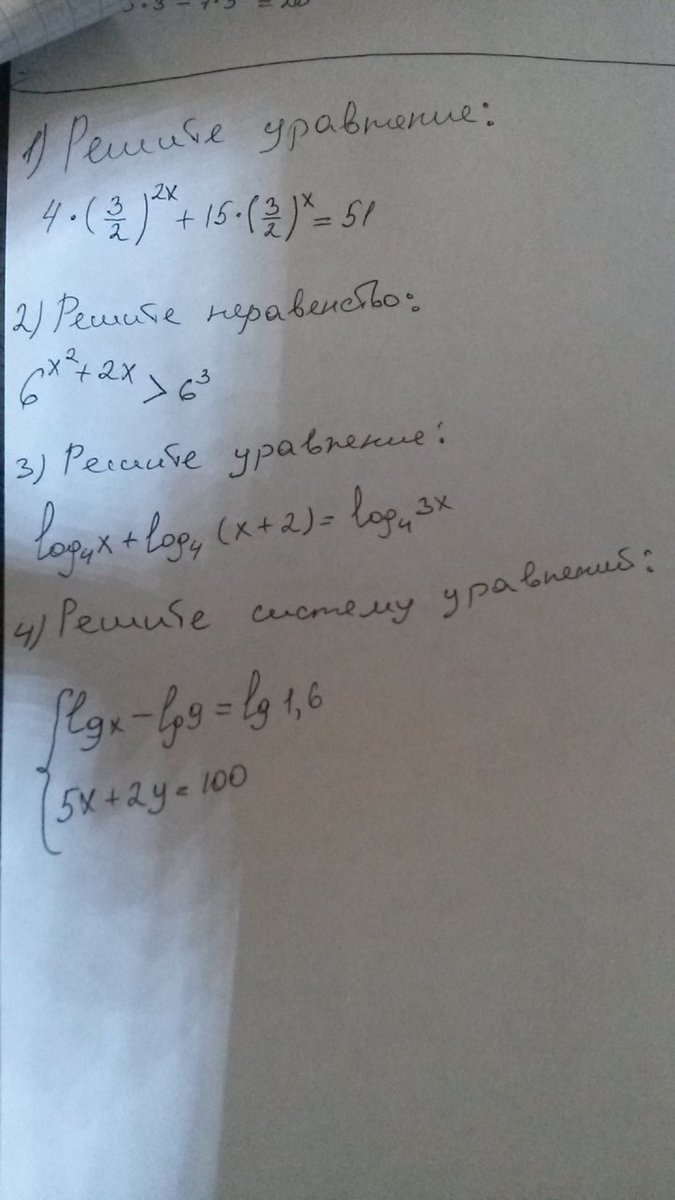 1) Решите уравнение:
4·(3/2)^2x + 15·(3/2)^x = 51
2) Решите неравенство:
6^x²+2x > 6³
3) Решите уравнение:
log₄x + log₄(x+2) = log₄3x
4) Решите систему уравнений:
{ lgx − lgy = lg 1,6
5x + 2y = 100